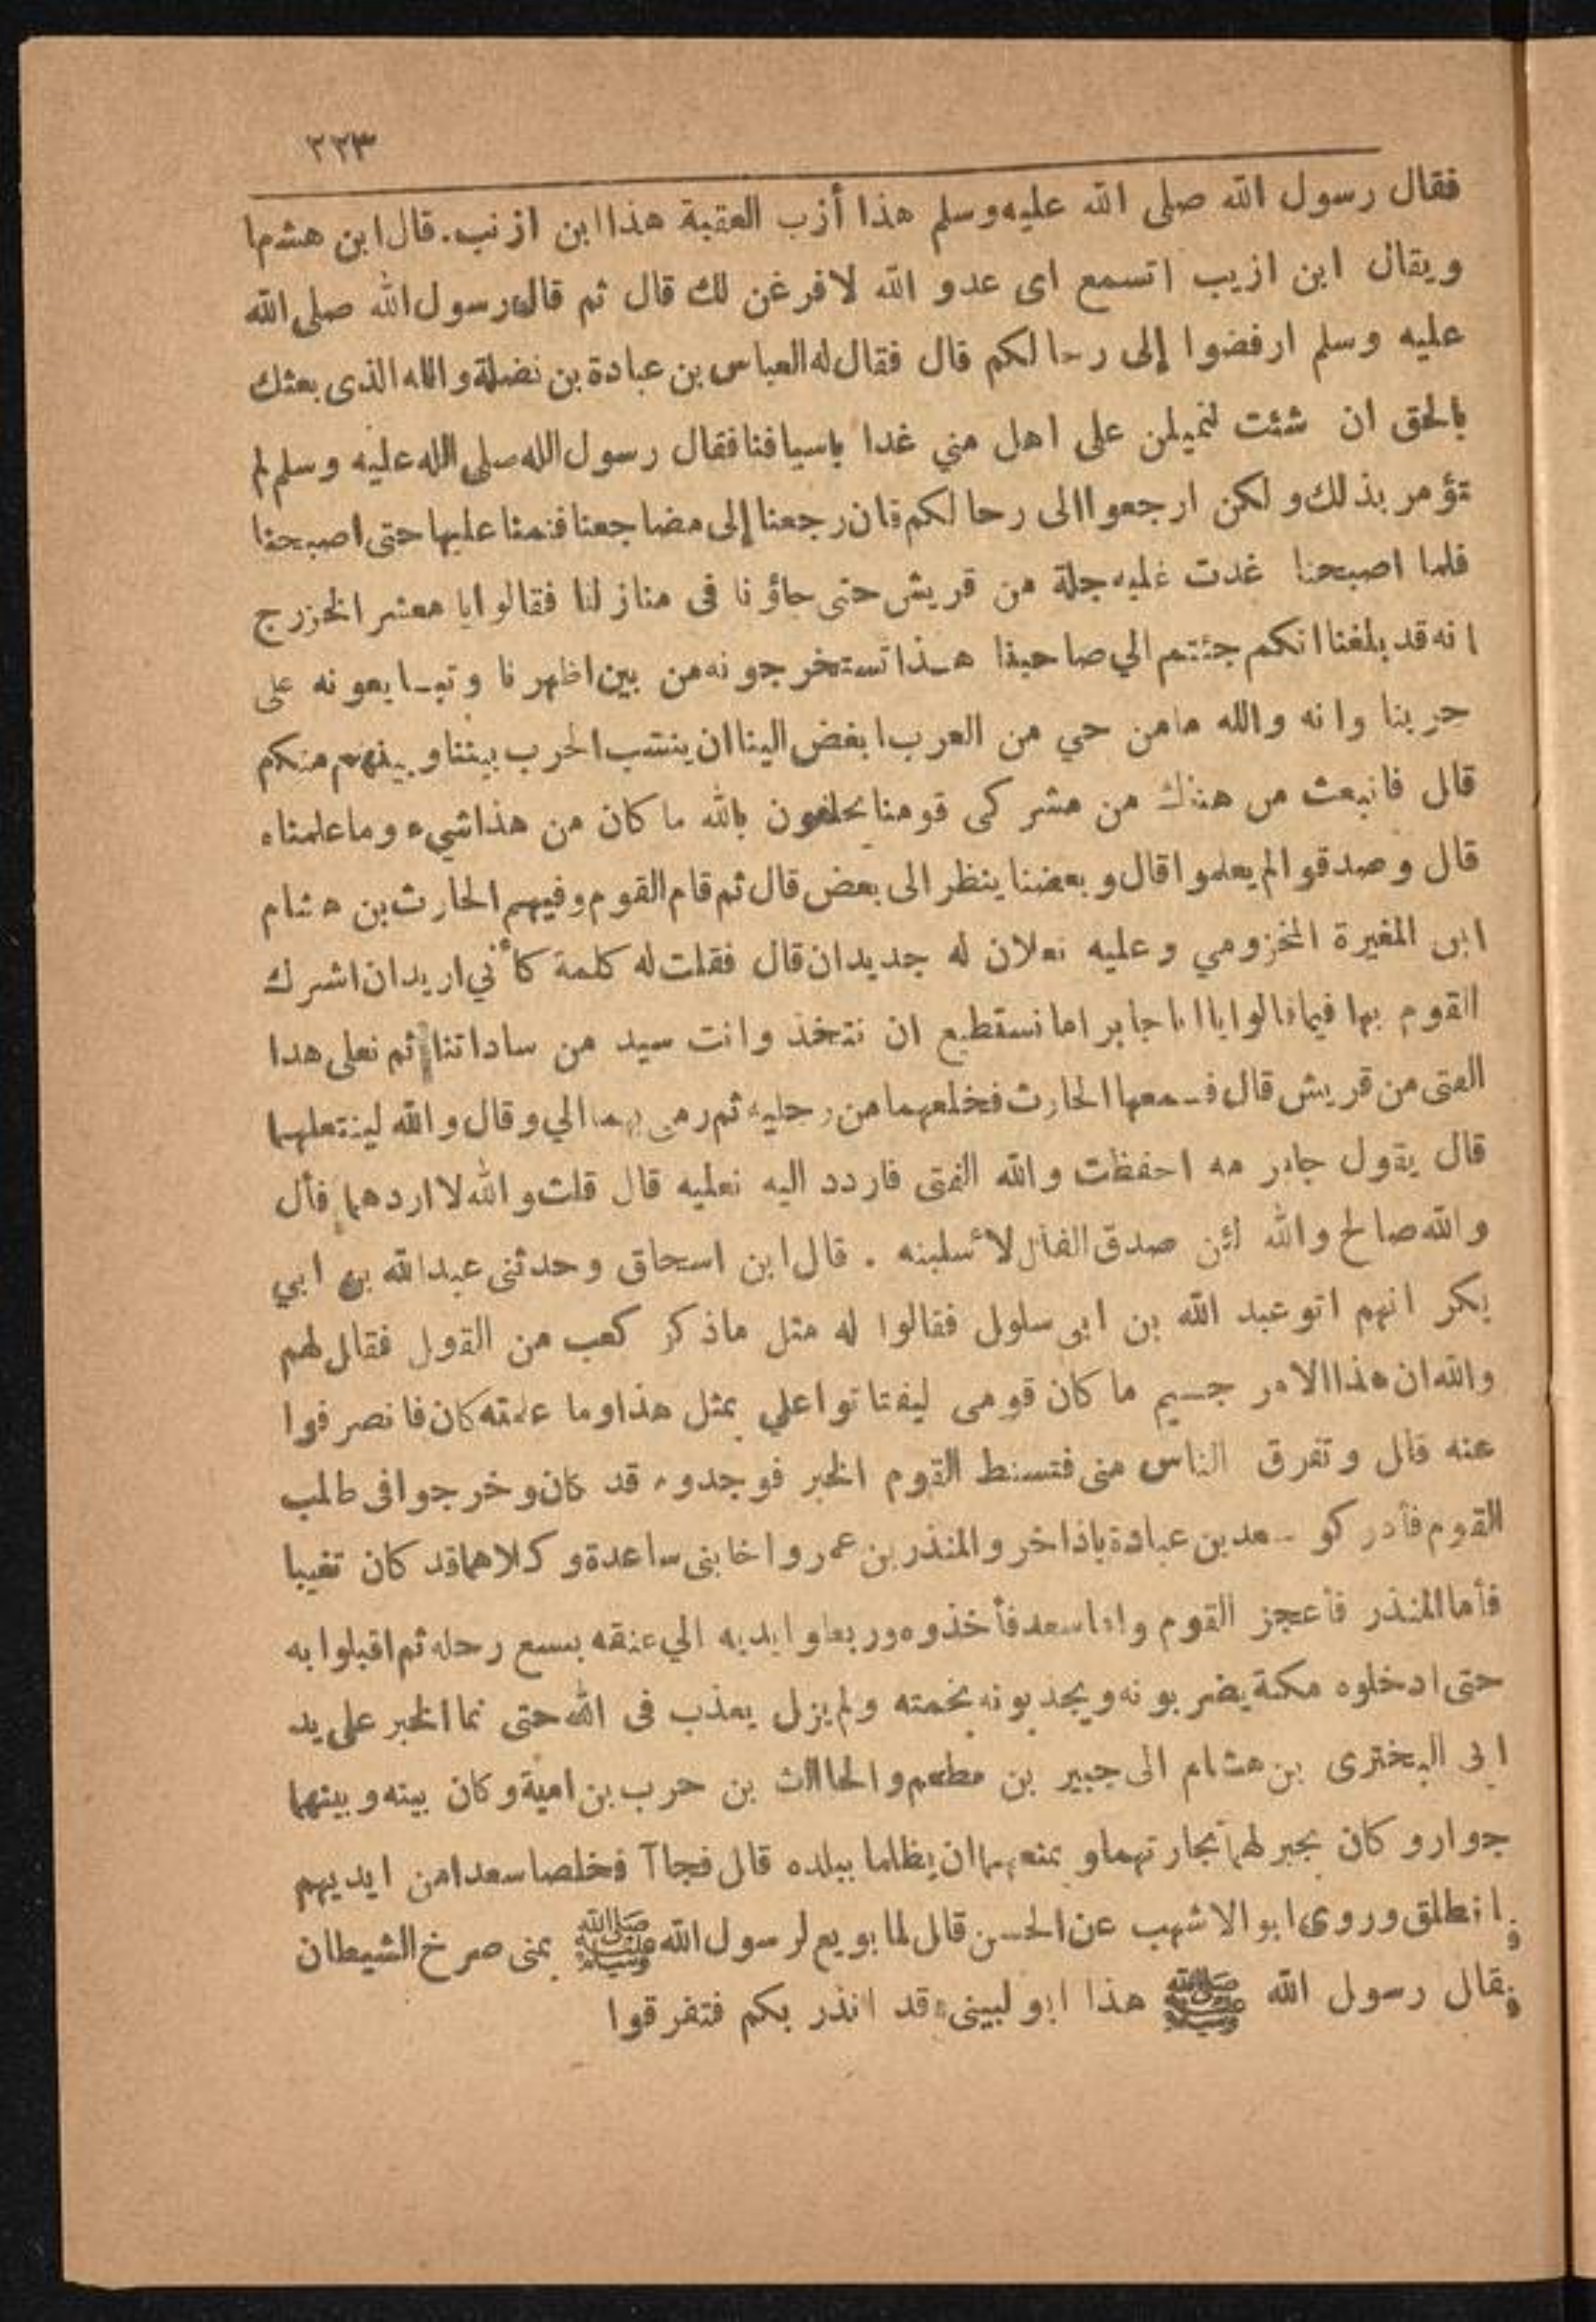 ٢٢٣
فقال رسول الله صلى الله عليه وسلم هذا أزب العقبة هذا ابن ازنب. قال ابن هشما
ويقال ابن ازيب اتسمع اى عدو الله لافرغن لك قال ثم قال رسول الله صلى الله
عليه وسلم ارفضوا إلى رحالكم قال فقال له العباس بن عبادة بن نضلة والله الذى بعثك
بالحق ان شئت لنميلن على اهل مني غدا باسيافنا فقال رسول الله صلى الله عليه وسلم لم
تؤمر بذلك ولكن ارجعوا الى رحالكم فان رجعنا إلى مضاجعنا فنمنا عليها حتى اصبحنا
فلما اصبحنا غدت عليه جلة من قريش حتى جاؤنا فى منازلنا فقالوا يا معشر الخزرج
انه قد بلغنا انكم جئتم الي صاحبنا هذا تستخرجونه من بين اظهرنا وتبايعونه على
حربنا وانه والله مامن حي من العرب ابغض الينا ان ينشب الحرب بيننا وبينهم منكم
قال فانبعث من هنالك من مشركى قومنا يحلفون بالله ما كان من هذا شيء وما علمناه
قال وصدقوا لم يعلموا قال وبعضنا ينظر الى بعض قال ثم قام القوم وفيهم الحارث بن هشام
ابن المغيرة المخزومي وعليه نعلان له جديدان قال فقلت له كلمة كأني اريد ان اشرك
القوم بها فيما قالوا يا ابا جابر اما نستطيع ان نتخذ وانت سيد من ساداتنا ثم نعلى هدا
الفتى من قريش قال فسمعها الحارث فخلعهما من رجليه ثم رمى بهما الي وقال والله لينتعلهما
قال يقول جابر مه احفظت والله الفتى فاردد اليه نعليه قال قلت والله لا اردهما فأل
والله صالح والله لئن صدق الفأل لأسلبنه . قال ابن اسحاق وحدثنى عبدالله بن ابي
بكر انهم اتو عبد الله بن ابى سلول فقالوا له مثل ماذكر كعب من القول فقال لهم
والله ان هذا الامر جسيم ما كان قومى ليفتاتوا علي بمثل هذا وما علمته كان فانصرفوا
عنه قال وتفرق الناس منى فتسنط القوم الخبر فوجدوه قد كان وخرجوا فى طلب
القوم فأدركو سعد بن عبادة باذاخر والمنذر بن عمرو اخا بنى ساعدة وكلاهما قد كان تغيبا
فأما المنذر فأعجز القوم واما سعد فأخذوه وربطوا يديه الي عنقه بسع رحله ثم اقبلوا به
حتى ادخلوه مكة يضربونه ويجذبونه بخمته ولم يزل يعذب فى الله حتى نما الخبر على يد
ابى البخترى بن هشام الى جبير بن مطعم والحاالث بن حرب بن امية وكان بينه وبينهما
جوار وكان يجبر لهما تجارتهما ويمنعهما ان يظلما ببلده قال فجاآ فخلصا سعدا من ايديهم
وانطلق وروى ابو الاشهب عن الحسن قال لما بويع لرسول الله ﷺ بمنى صرخ الشيطان
فقال رسول الله ﷺ هذا ابو لبينى قد انذر بكم فتفرقوا